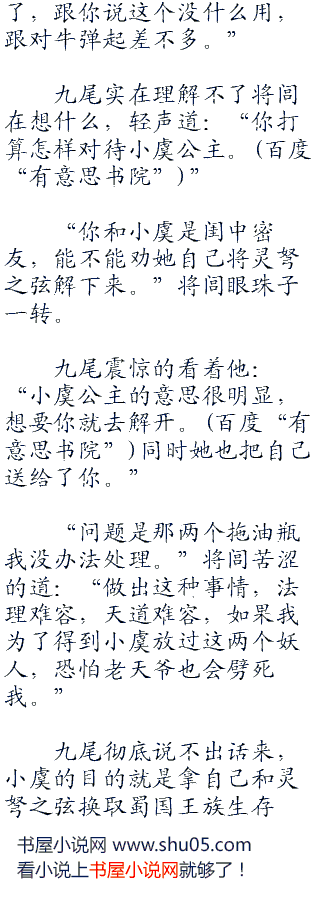 了，跟你说这个没什么用，
跟对牛弹起差不多。”
九尾实在理解不了将闾
在想什么，轻声道：“你打
算怎样对待小虞公主。(百度
“有意思书院”)”
“你和小虞是闺中密
友，能不能劝她自己将灵弩
之弦解下来。”将闾眼珠子
一转。
九尾震惊的看着他：
“小虞公主的意思很明显，
想要你就去解开。(百度“有
意思书院”)同时她也把自己
送给了你。”
“问题是那两个拖油瓶
我没办法处理。”将闾苦涩
的道：“做出这种事情，法
理难容，天道难容，如果我
为了得到小虞放过这两个妖
人，恐怕老天爷也会劈死
我。”
九尾彻底说不出话来，
小虞的目的就是拿自己和灵
弩之弦换取蜀国王族生存
书屋小说网 www.shu05.com
看小说上书屋小说网就够了！